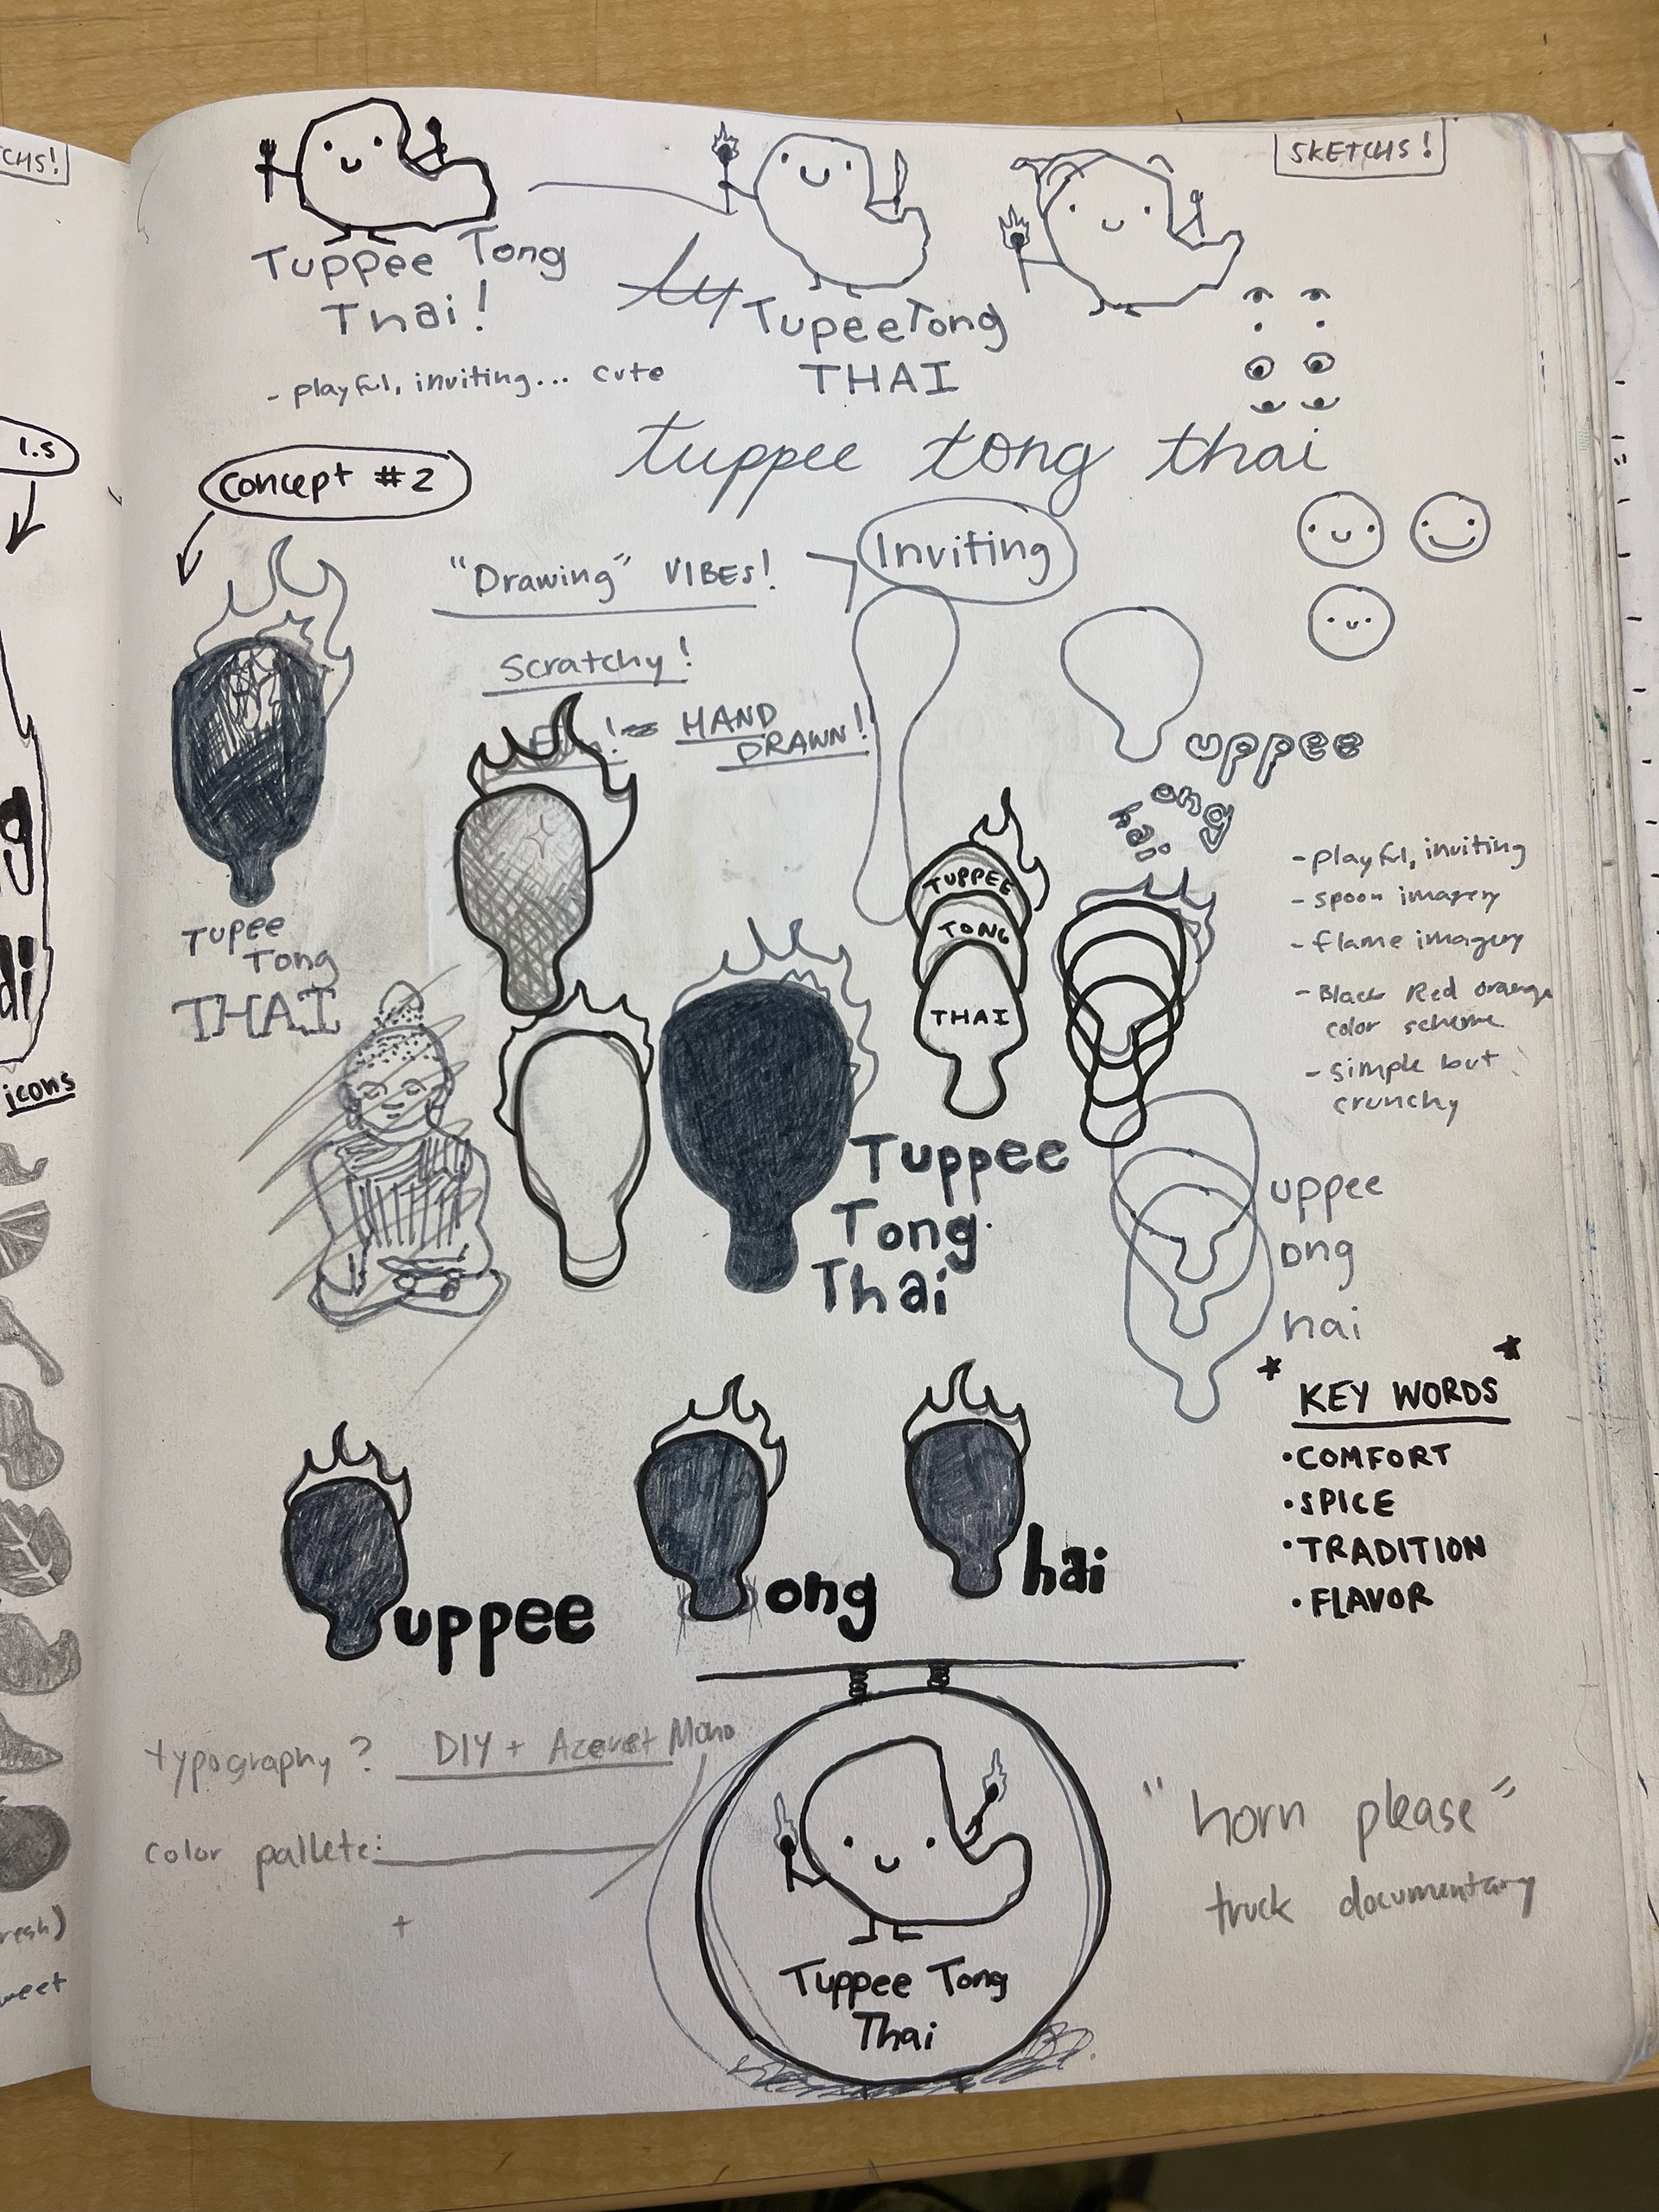 SKETCHS!
Tuppee Tong
Thai!
ty
TupeeTong
THAI
- playful, inviting... cute
tuppee tong thai
1.5
Concept #2
"Drawing" VIBES!
Inviting
Scratchy!
HAND
DRAWN!
uppee
ong
hai
TUPPEE
TONG
THAI
- playful, inviting
- spoon imagery
- flame imagery
- Black Red orange
color scheme
- simple but
crunchy
Tupee
Tong
THAI
icons
Tuppee
Tong
Thai
uppee
ong
hai
KEY WORDS
• COMFORT
• SPICE
• TRADITION
• FLAVOR
uppee
ong
hai
typography? DIY + Azeret Mono
color pallete:
+
"horn please"
truck documentary
Tuppee Tong
Thai